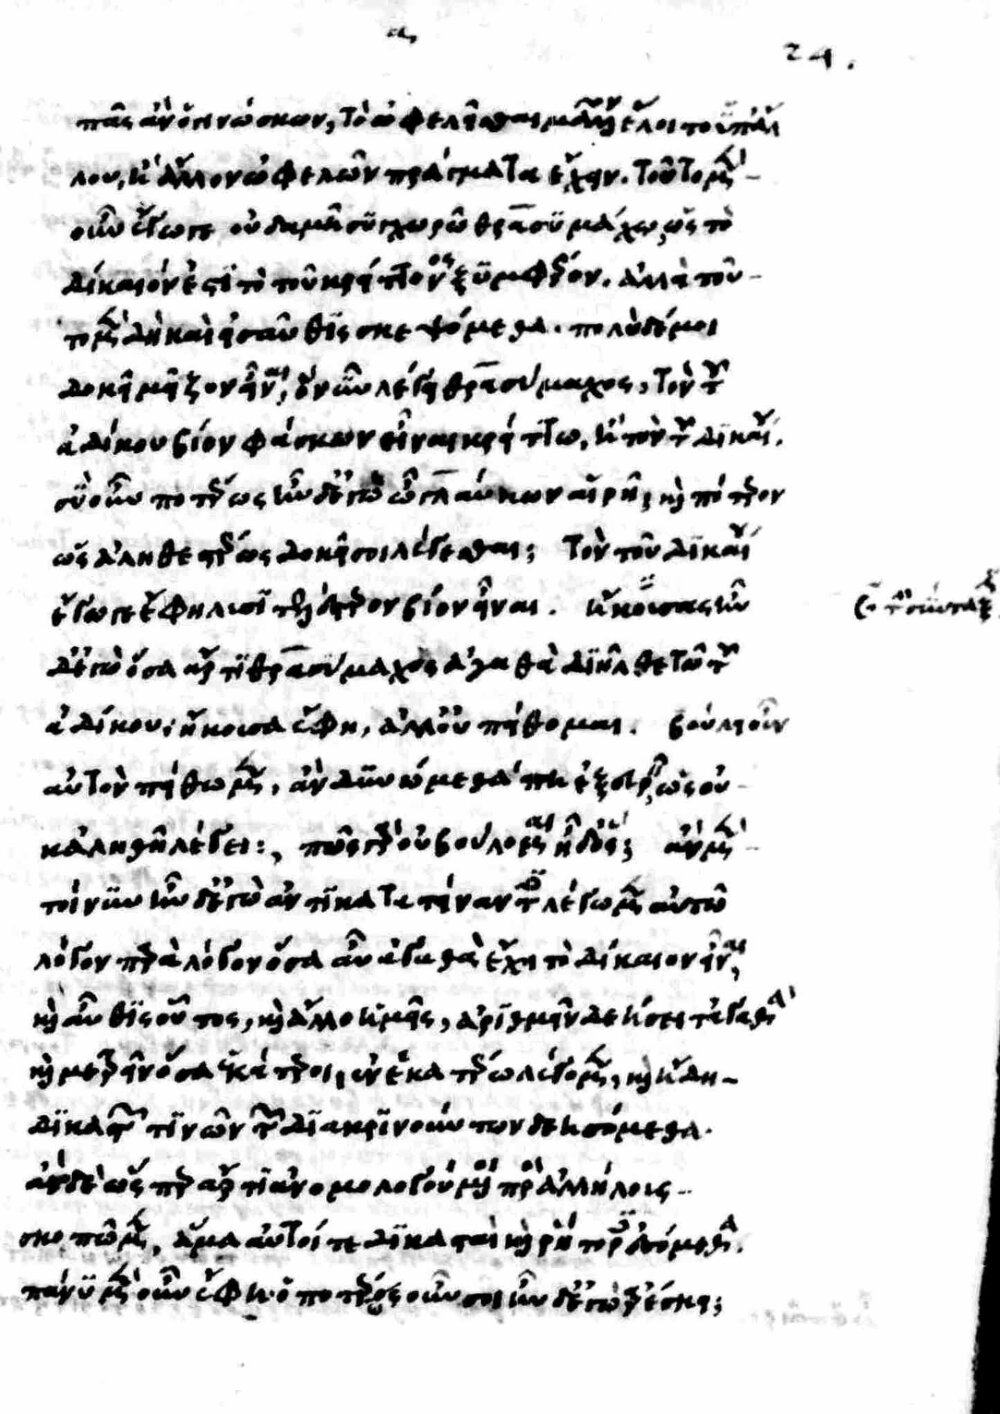 α,
24.
πᾶς ἂν ὁ γινώσκων, τὸ ὠφελεῖσθαι μᾶλλον ἕλοιτο ὑπ' ἄλ
λου, ἢ ἄλλον ὠφελῶν πράγματα ἔχειν. τοῦτο μὲν
οὖν ἔγωγε οὐδαμῆ συγχωρῶ θρασυμάχω, ὡς τὸ
δίκαιόν ἐστι τὸ τοῦ κρείττονος ξυμφέρον. ἀλλὰ τοῦ
το μὲν δὴ καὶ εἰσαῦθις σκεψόμεθα. πολὺ δέ μοι
δοκεῖ μεῖζον εἶναι, ὃ νῦν λέγει θρασύμαχος, τὸν τοῦ
ἀδίκου βίον φάσκων εἶναι κρείττω, ἢ τὸν τοῦ δικαίου.
σὺ οὖν ποτέρως ἦν δ' ἐγὼ ὦ γλαύκων αἱρῆ; καὶ πότερον
ὡς ἀληθεστέρως δοκεῖ σοι λέγεσθαι; τὸν τοῦ δικαίου
ἔγωγε ἔφη λυσιτελέστερον βίον εἶναι. ἤκουσας ἦν
δ' ἐγὼ ὅσα ἄρτι θρασύμαχος ἀγαθὰ διῆλθε τῶ τοῦ
ἀδίκου; ἤκουσα ἔφη, ἀλλ' οὐ πείθομαι. βούλει οὖν
αὐτὸν πείθωμεν, ἂν δυνώμεθά πη ἐξευρεῖν, ὡς οὐ
κ ἀληθῆ λέγει; πῶς γὰρ οὐ βούλομαι ἦ δ' ὅς; ἂν μὲν
τοίνυν ἦν δ' ἐγὼ ἀντικατατείναντες λέγωμεν αὐτῶ
λόγον παρὰ λόγον ὅσα αὖ ἀγαθὰ ἔχει τὸ δίκαιον εἶναι,
καὶ αὖθις οὗτος, καὶ ἄλλο ἡμεῖς, ἀριθμεῖν δεήσει τἀγαθὰ
καὶ μετρεῖν ὅσα ἑκάτεροι ἐν ἑκατέρω λέγομεν, καὶ ἤδη
δικαστῶν τινῶν τῶν διακρινούντων δεησόμεθα.
ἂν δὲ ὥσπερ ἄρτι ἀνομολογούμενοι πρὸς ἀλλήλους
σκοπῶμεν, ἅμα αὐτοί τε δικασταὶ καὶ ῥήτορες ἐσόμεθα.
πάνυ μὲν οὖν ἔφη. ὁποτέρως οὖν σοι ἦν δ' ἐγὼ ἀρέσκει;